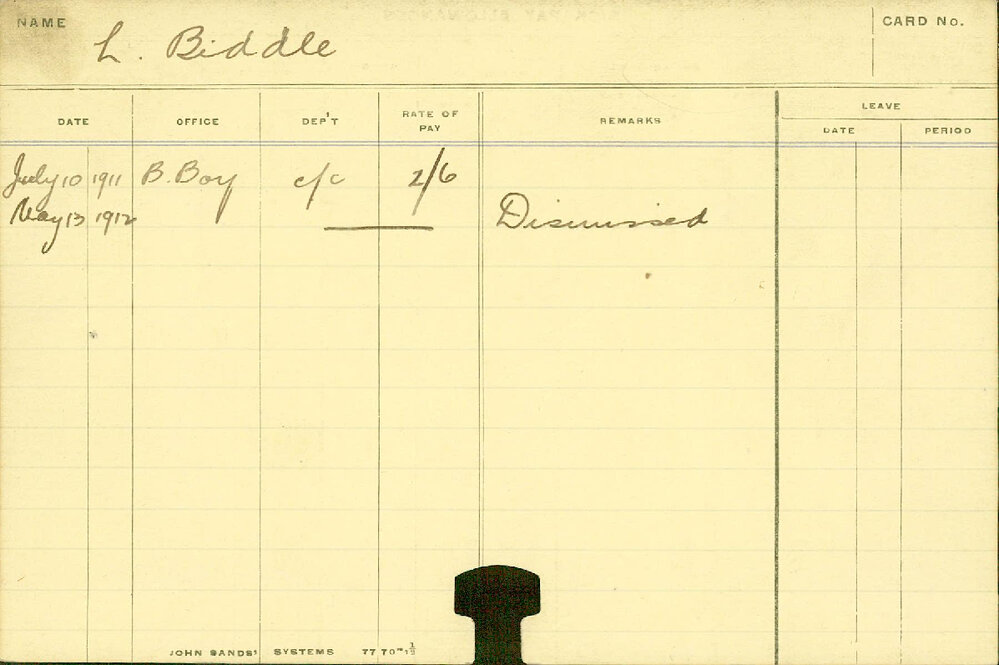 NAME L. Biddle CARD No.
DATE OFFICE DEP'T RATE OF PAY REMARKS LEAVE
DATE PERIOD
July 10 1911 B. Boy c/c 2/6
May 13 1912 Dismissed
JOHN SANDS' SYSTEMS 77 70